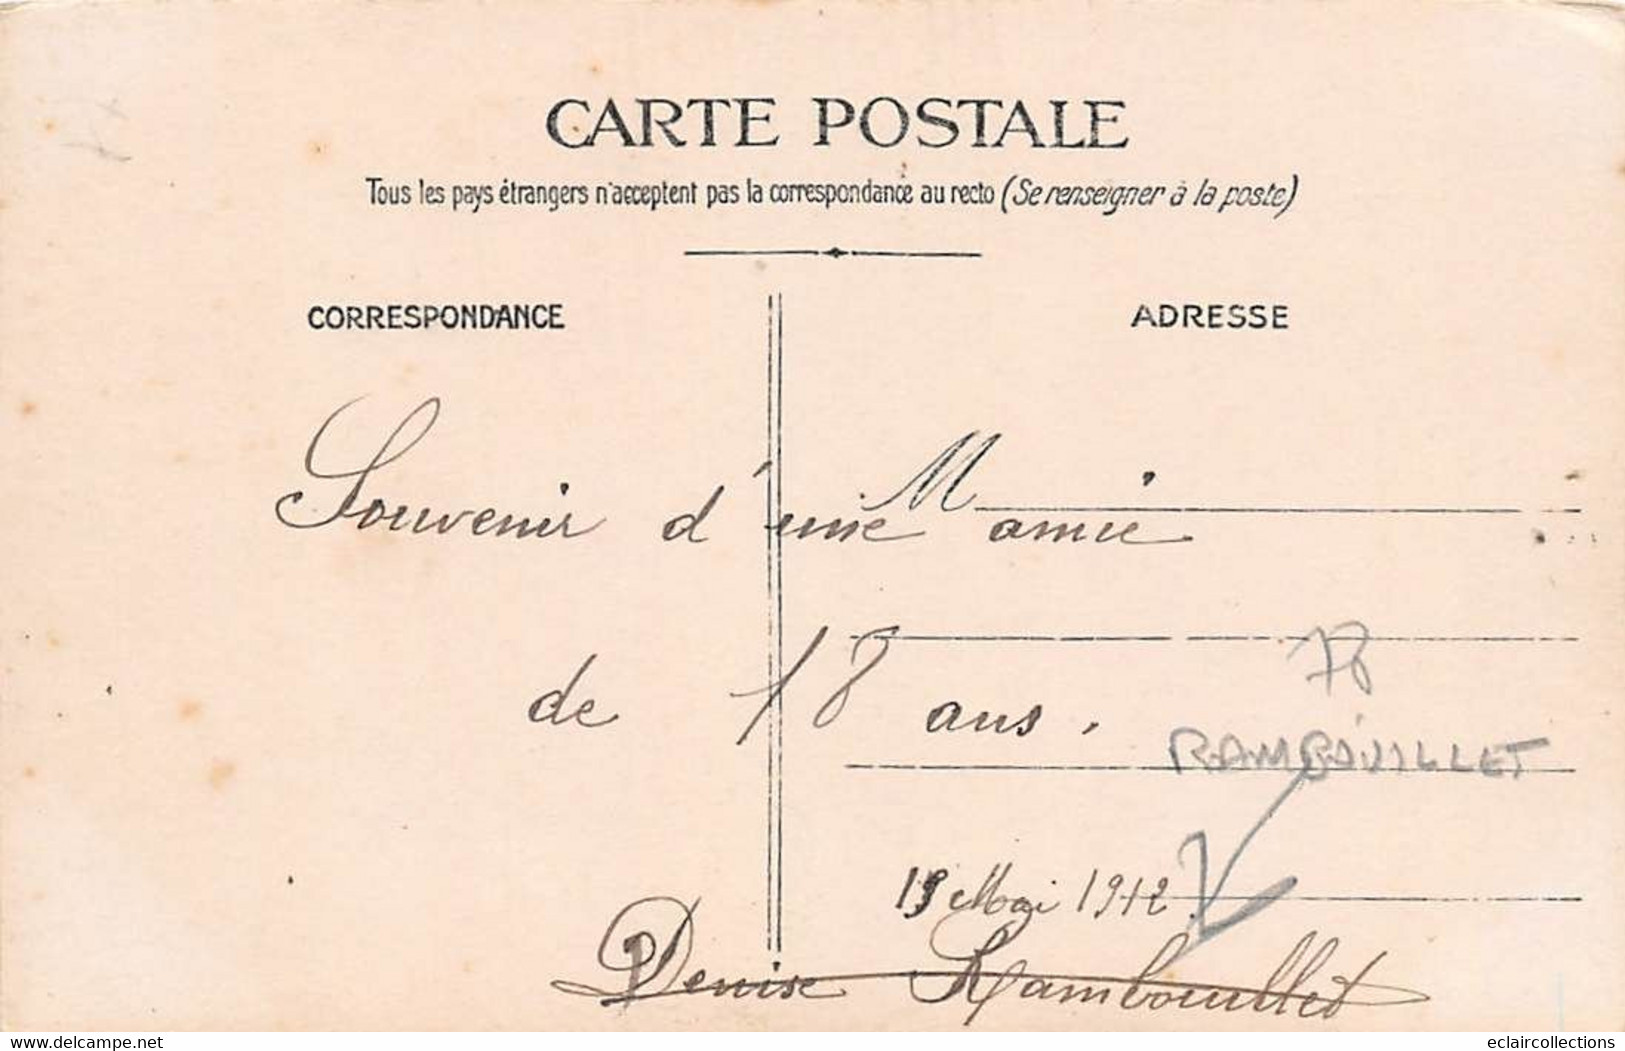 CARTE POSTALE
Tous les pays étrangers n'acceptent pas la correspondance au recto (Se renseigner à la poste)
CORRESPONDANCE ADRESSE
M
Souvenir d'une amie
de 18 ans.
78
RAMBOUILLET
19 Mai 1912.
Denise Rambouillet
www.delcampe.net eclaircollections